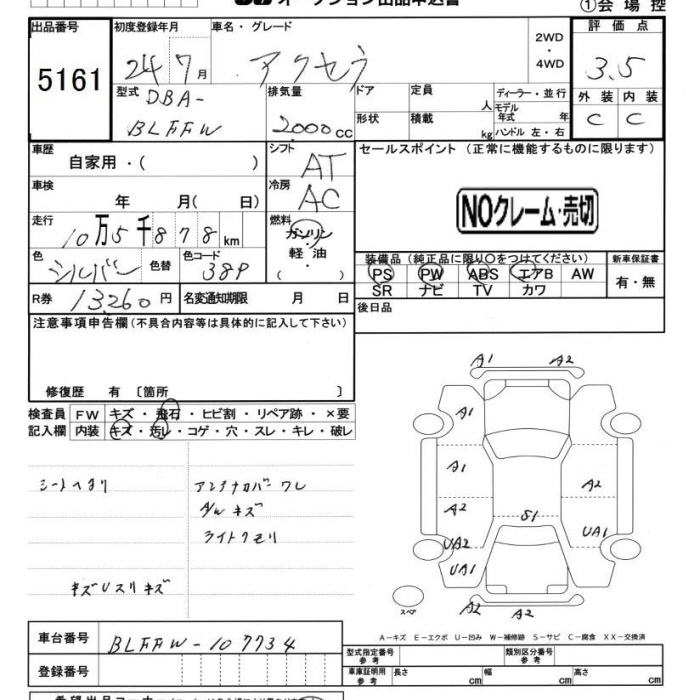 オークション出品申込書
①会場控
出品番号
5161
初度登録年月
24 7月
車名・グレード
アクセラ
2WD
・
4WD
評価点
3.5
外装 内装
C C
型式
DBA-
BLFFW
排気量
2000cc
ドア
定員
人
形状
積載
kg
ディーラー・並行
モデル
年式 年
ハンドル 左・右
車歴
自家用・( )
シフト
AT
セールスポイント (正常に機能するものに限ります)
NOクレーム・売切
車検
年 月( 日)
冷房
AC
走行
10万5千878km
燃料
ガソリン
軽油
( )
色
シルバー
色替
色コード
38P
装備品 (純正品に限り○をつけてください)
PS PW ABS エアB AW
SR ナビ TV カワ
新車保証書
有・無
R券 13260円
名変通知期限 月 日
後日品
注意事項申告欄(不具合内容等は具体的に記入して下さい)
修復歴 有 〔箇所 〕
検査員
記入欄
FW キズ・飛石・ヒビ割・リペア跡・×要
内装 キズ・汚レ・コゲ・穴・スレ・キレ・破レ
シートヘタリ
アンテナカバーワレ
A/Wキズ
ライトクモリ
キズUスリキズ
A1 A2
A1
A1
A2
A2
S1
UA2
UA1
UA1
A2 A2
スペア
A-キズ E-エクボ U-凹み W-補修跡 S-サビ C-腐食 XX-交換済
車台番号
BLFFW-107734
登録番号
型式指定番号
参考
類別区分番号
参考
車庫証明用
参考
長さ cm
幅 cm
高さ cm